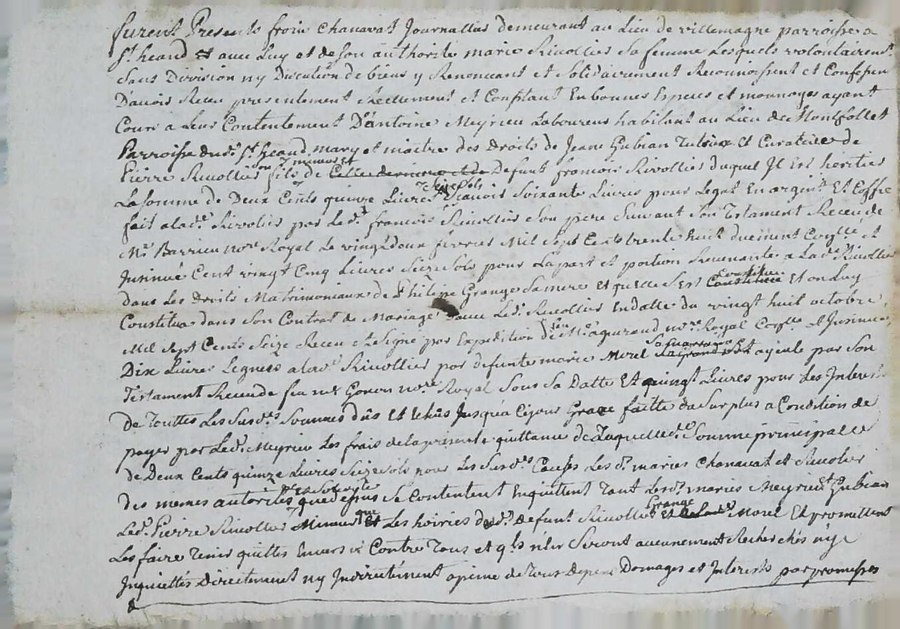 furent Presents froin Chanavat Journallier demeurant au Lieu de villemagne parroisse a
St. heand Et avec Luy et de son authorité marie Rivollier sa femme Lesquels volontairemt
Sans Division ny Discution de biens y Renoncant et Solidairement Reconnoissent et Confessen
D'avoir Receu presentement Reellement et Comptant En bonnes Especes et monnoyes ayant
Cours a Leur Contentement D'antoine Meyrieu Laboureur habitant au Lieu de Montfollet
Parroisse dud. St. heand, mary et maitre des Droits de Jeane Gubian Tutrice Et Curatrice de
Pierre Rivollier son mineur et fils de Defunt francois Rivollier duquel Il est heritier
La somme de Deux Cents quinze Livres Seize Sols Scavoir Soixante Livres pour Legat En argent Et Coffre
fait a lad. Rivolier par Led. francois Rivollier Son pere Suivant Son Testament Receu de
Me Barrieu nore Royal Le vingt Deux fevrier Mil Sept Cents trente huit duement Cog.lle et
Insinué Cent vingt Cinq Livres Seize Sols pour La part et portion Revenante a Lad. Rivollier
dans Les Droits Matrimoniaux de Philipe Grange Sa mere Et quelle S'est Constituee Et on Luy
Constitua dans Son Contrat de Mariage avec Led. Rivollier En datte du vingt huit octobre
Mil Sept Cents Seize Receu et Signé par Expedition de Me aguiraud nore Royal Cog.lle Et Insinué
Dix Livres Leguees a lad. Rivollier par defunte marie Morel Sa grand ayeule par Son
Testament Receu de feu Me Gonon nore Royal Sous Sa Datte Et vingt Livres pour Les Interests
de Touttes Les Susd. Sommes dûs Et Echûs Jusqua Cejour Grace faitte du Surplus a Condition de
payer par Led. Meyrieu Les frais de La presente quittance de Laquelle de. Somme principalle
de Deux Cents quinze Livres Seize Sols pour Les Susd. Causes Les d. maries Chanavat et Rivolier
Des memes autorités que dessus Se Contentent En quittent Tant Lesd. maries Meyrieu Et Gubian
Led. Pierre Rivollier Mineur que Les hoiries dud. defunt Rivollier Grange Et Morel Et promettent
Les faire Tenir quittes Envers et Contre Tous et qls n'en Seront aucunement Recherchés ny
Inquiettés Directement ny Indirectement a peine de tous Depens Domages et Interests par promesses